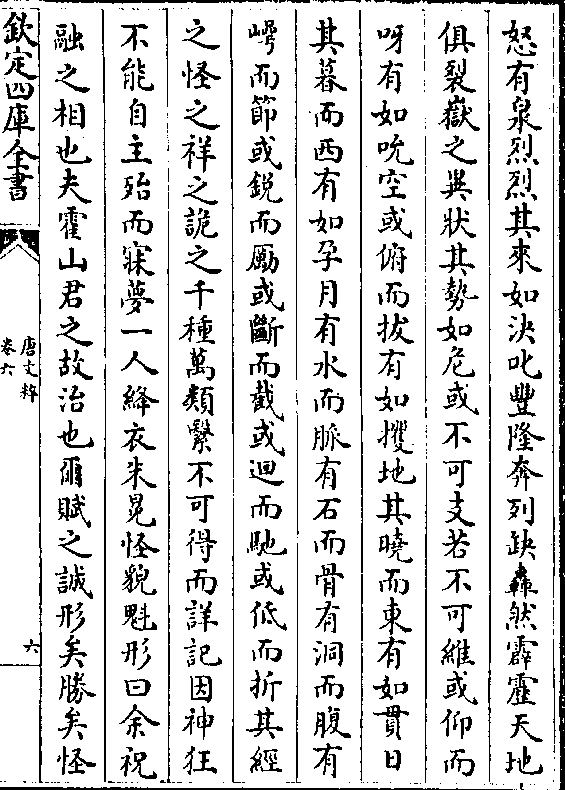 怒有泉烈烈其來如決叱豐隆奔列缺轟然霹靂天地
俱裂嶽之異狀其勢如危或不可支若不可維或仰而
呀有如吮空或俯而拔有如攫地其曉而東有如貫日
其暮而西有如孕月有水而脈有石而骨有洞而腹有
崿而節或銳而勵或斷而截或迴而馳或低而折其經
之怪之祥之詭之千種萬類繄不可得而詳記因神狂
不能自主殆而寐夢一人絳衣朱冕怪貌魁形曰余祝
融之相也夫霍山君之故治也爾賦之誠形矣勝矣怪
欽定四庫全書
唐文粹
卷六
六